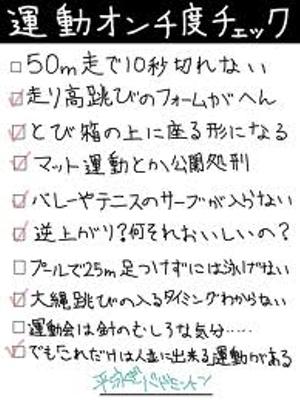 運動オンチ度チェック
50m走で10秒切れない
走り高跳びのフォームがへん
とび箱の上に座る形になる
マット運動とか公開処刑
バレーやテニスのサーブが入らない
逆上がり?何それおいしいの?
プールで25m足つけずには泳げない
大縄跳びの入るタイミングわからない
運動会は針のむしろな気分……
でも「これだけは人並に出来る」運動がある
平泳ぎ バドミントン